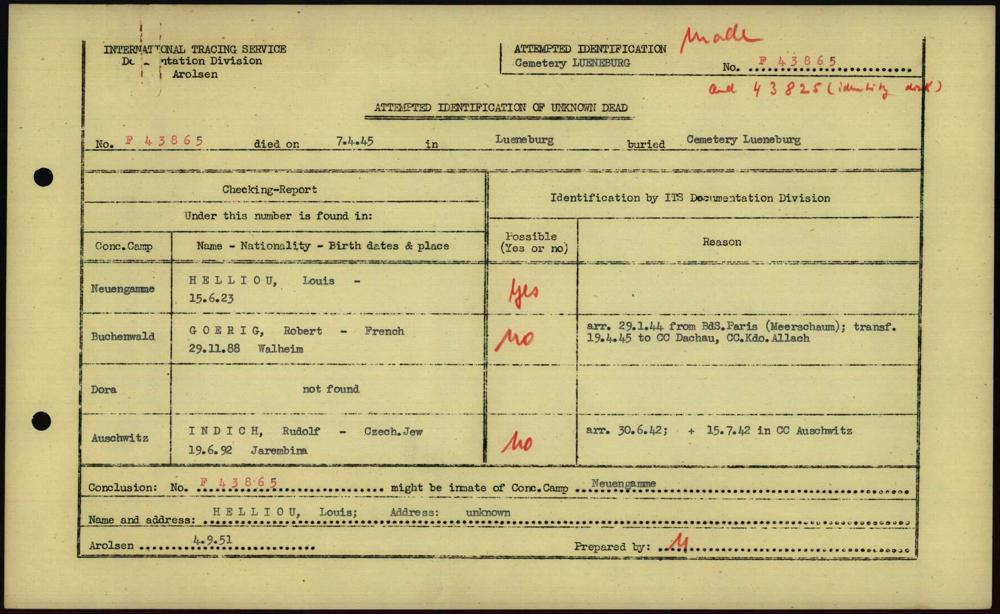 INTERNATIONAL TRACING SERVICE
Arolsen
ATTEMPTED IDENTIFICATION
Cemetery LUENEBURG
No. F 43865
and 43825 (identity disk)
ATTEMPTED IDENTIFICATION OF UNKNOWN DEAD
No. F 43865 died on 7.4.45 in Lueneburg buried Cemetery Lueneburg
Checking-Report
Under this number is found in:
Identification by ITS Documentation Division
Conc.Camp Name - Nationality - Birth dates & place
Possible
(Yes or no)
Reason
Neuengamme
H E L L I O U, Louis -
15.6.23
Yes
Buchenwald
G O E R I G, Robert - French
29.11.88 Walheim
no
arr. 29.1.44 from BdS.Paris (Meerschaum); transf.
19.4.45 to CC Dachau, CC.Kdo.Allach
Dora not found
Auschwitz
I N D I C H, Rudolf - Czech.Jew
19.6.92 Jarembina
no
arr. 30.6.42; + 15.7.42 in CC Auschwitz
Conclusion: No. F 43865 might be inmate of Conc.Camp Neuengamme
Name and address: H E L L I O U, Louis; Address: unknown
Arolsen 4.9.51 Prepared by: